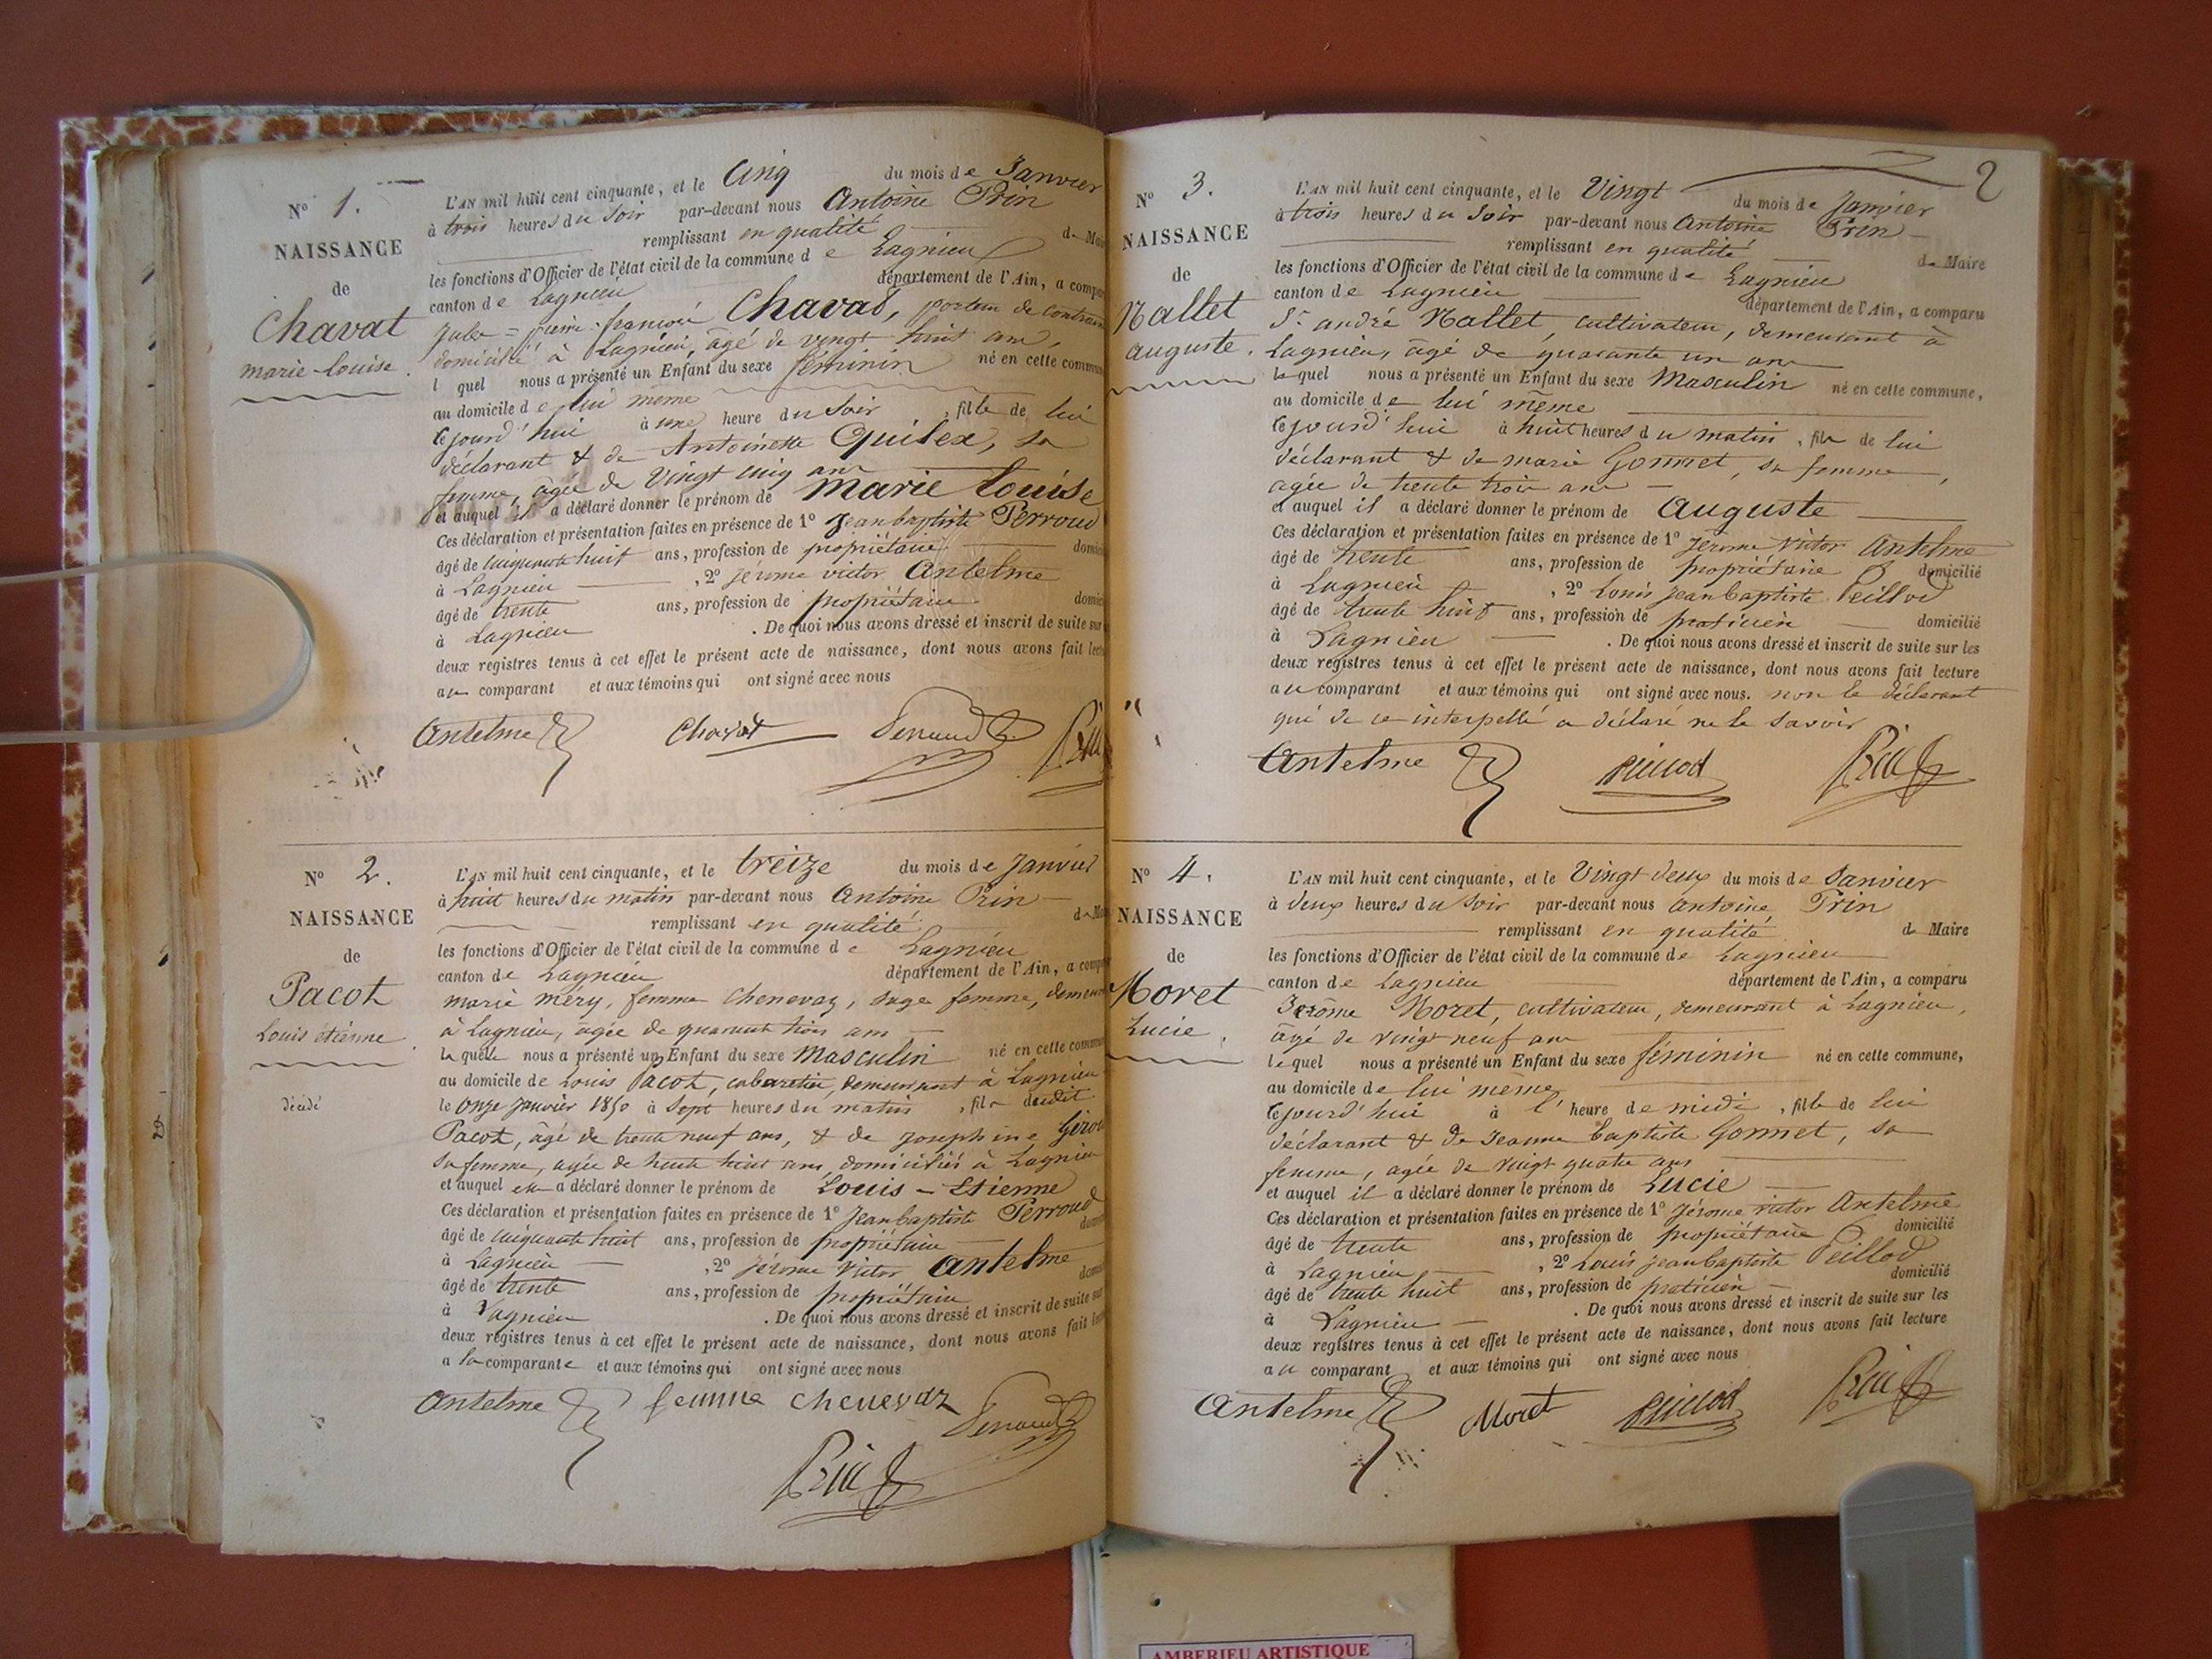 N° 1.
NAISSANCE
de
Chavat
marie-louise.
L'AN mil huit cent cinquante, et le Cinq du mois de Janvier
à trois heures du Soir par-devant nous Antoine Prin
remplissant en qualité de Mai
les fonctions d'Officier de l'état civil de la commune de Lagnieu
canton de Lagnieu département de l'Ain, a compa
Jules = pierre-françois Chavat, porteur de contrain
domicilié à Lagnieu, âgé de vingt huit ans,
l quel nous a présenté un Enfant du sexe féminin né en cette commun
au domicile de lui même
cejourd'hui à une heure du Soir, fille de lui
déclarant & de Antoinette Quilex, sa
femme, âgée de Vingt cinq ans
et auquel il a déclaré donner le prénom de marie louise
Ces déclaration et présentation faites en présence de 1° Jean baptiste Perroud
âgé de cinquante huit ans, profession de propriétaire domici
à Lagnieu, 2° jérome victor Antelme
âgé de trente ans, profession de propriétaire domici
à Lagnieu. De quoi nous avons dressé et inscrit de suite sur
deux registres tenus à cet effet le présent acte de naissance, dont nous avons fait lect
au comparant et aux témoins qui ont signé avec nous
Antelme Chavat Perroud Prin
N° 2.
NAISSANCE
de
Pacot
Louis etienne
décédé
L'AN mil huit cent cinquante, et le treize du mois de Janvier
à huit heures du matin par-devant nous Antoine Prin
remplissant en qualité de Mai
les fonctions d'Officier de l'état civil de la commune de Lagnieu
canton de Lagnieu département de l'Ain, a compa
marie mery, femme chenevaz, sage femme, demeur
à Lagnieu, âgée de quarante trois ans
laquelle nous a présenté un Enfant du sexe Masculin né en cette commun
au domicile de Louis Pacot, cabaretier, demeurant à Lagnieu
le onze janvier 1850 à Sept heures du matin, fils dudit
Pacot, âgé de trente neuf ans, & de Josephine Girou
sa femme, agée de trente huit ans, domiciliés à Lagnieu
et auquel elle a déclaré donner le prénom de Louis - Etienne
Ces déclaration et présentation faites en présence de 1° Jean baptiste Perroud
âgé de cinquante huit ans, profession de propriétaire domici
à Lagnieu, 2° jérome Victor Antelme
âgé de trente ans, profession de propriétaire domici
à Lagnieu. De quoi nous avons dressé et inscrit de suite sur
deux registres tenus à cet effet le présent acte de naissance, dont nous avons fait lect
a la comparante et aux témoins qui ont signé avec nous
Antelme femme chenevaz Perroud
Prin
2
N° 3.
NAISSANCE
de
Nallet
auguste.
L'AN mil huit cent cinquante, et le Vingt du mois de Janvier
à trois heures du Soir par-devant nous Antoine Prin
remplissant en qualité de Maire
les fonctions d'Officier de l'état civil de la commune de Lagnieu
canton de Lagnieu département de l'Ain, a comparu
Sr andré Nallet, cultivateur, demeurant à
Lagnieu, âgé de quarante un ans
lequel nous a présenté un Enfant du sexe Masculin né en cette commune,
au domicile de lui même
cejourd'hui à huit heures du matin, fils de lui
déclarant & de marie Gonnet, sa femme,
agée de trente trois ans
et auquel il a déclaré donner le prénom de Auguste
Ces déclaration et présentation faites en présence de 1° Jerome Victor Antelme
âgé de trente ans, profession de propriétaire domicilié
à Lagnieu, 2° Louis jean baptiste Peillod
âgé de trente huit ans, profession de praticien domicilié
à Lagnieu. De quoi nous avons dressé et inscrit de suite sur les
deux registres tenus à cet effet le présent acte de naissance, dont nous avons fait lecture
au comparant et aux témoins qui ont signé avec nous. non le déclarant
qui de ce interpellé a déclaré ne le savoir
Antelme Peillod Prin
N° 4.
NAISSANCE
de
Moret
Lucie.
L'AN mil huit cent cinquante, et le Vingt deux du mois de Janvier
à deux heures du Soir par-devant nous antoine Prin
remplissant en qualité de Maire
les fonctions d'Officier de l'état civil de la commune de Lagnieu
canton de Lagnieu département de l'Ain, a comparu
Jérôme Moret, cultivateur, demeurant à Lagnieu,
âgé de vingt neuf ans
lequel nous a présenté un Enfant du sexe féminin né en cette commune,
au domicile de lui même
cejourd'hui à l' heure de midi, fille de lui
déclarant & de Jeanne baptiste Gonnet, sa
femme, agée de vingt quatre ans
et auquel il a déclaré donner le prénom de Lucie
Ces déclaration et présentation faites en présence de 1° Jérome victor Antelme
âgé de trente ans, profession de propriétaire domicilié
à Lagnieu, 2° Louis jean baptiste Peillod
âgé de trente huit ans, profession de praticien domicilié
à Lagnieu. De quoi nous avons dressé et inscrit de suite sur les
deux registres tenus à cet effet le présent acte de naissance, dont nous avons fait lecture
au comparant et aux témoins qui ont signé avec nous
Antelme Moret Peillod Prin
AMBERIEU ARTISTIQUE